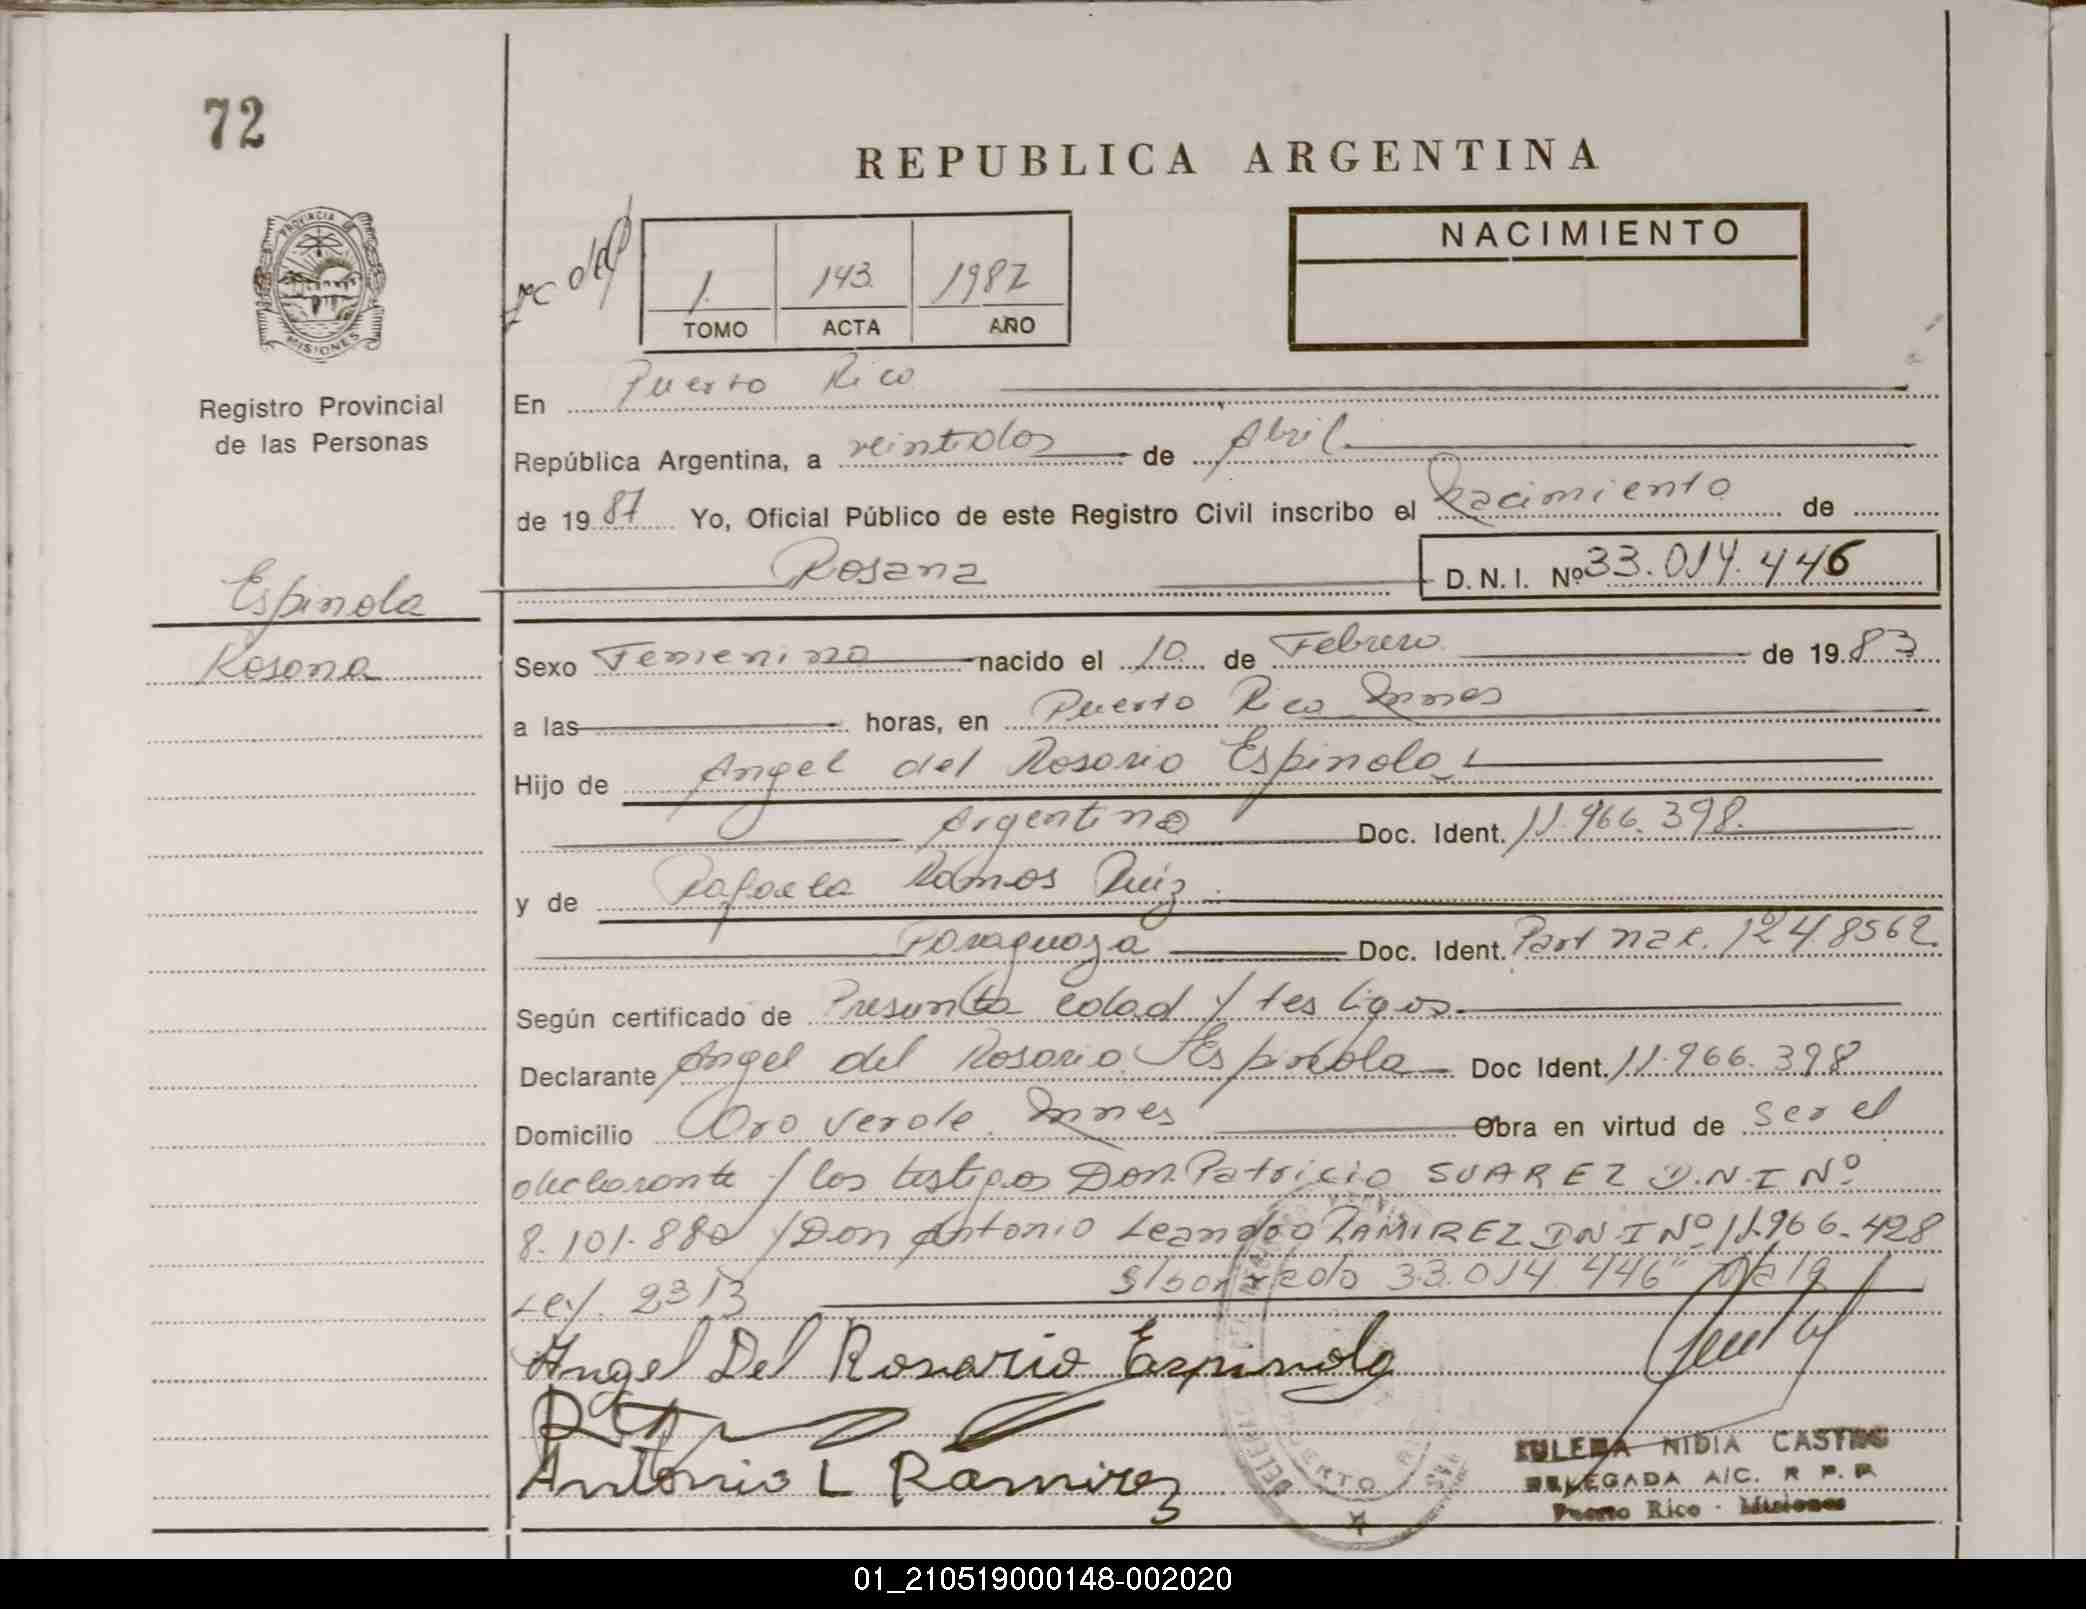 72
REPUBLICA ARGENTINA
PROVINCIA DE
MISIONES
Registro Provincial
de las Personas
1. 143. 1987
TOMO ACTA AÑO
NACIMIENTO
En Puerto Rico
República Argentina, a veintidos de Abril
de 1987 Yo, Oficial Público de este Registro Civil inscribo el Nacimiento de
Rosana D.N.I. Nº 33.014.446
Espinola
Rosana
Sexo Femenino nacido el 10 de Febrero de 1983
a las horas, en Puerto Rico Mnes
Hijo de Angel del Rosario Espinola
Argentino Doc. Ident. 11.966.398.
y de Rafaela Ramos Ruiz.
Paraguaya Doc. Ident. Part nac. Nº 248562.
Según certificado de Presunta edad y testigos.
Declarante Angel del Rosario Espinola Doc Ident. 11.966.398
Domicilio Oro Verde. Mnes Obra en virtud de ser el
declarante y los testigos Don Patricio SUAREZ D.N.I Nº
8.101.880 y Don Antonio Leandro RAMIREZ DNI Nº 11.966.428
Ley. 2313 s/borrado 33.014.446" Vale
Angel Del Rosario Espinola
Antonio L Ramirez
ZULEMA NIDIA CASTRO
DELEGADA A/C. R.P.P.
Puerto Rico - Misiones
01_210519000148-002020